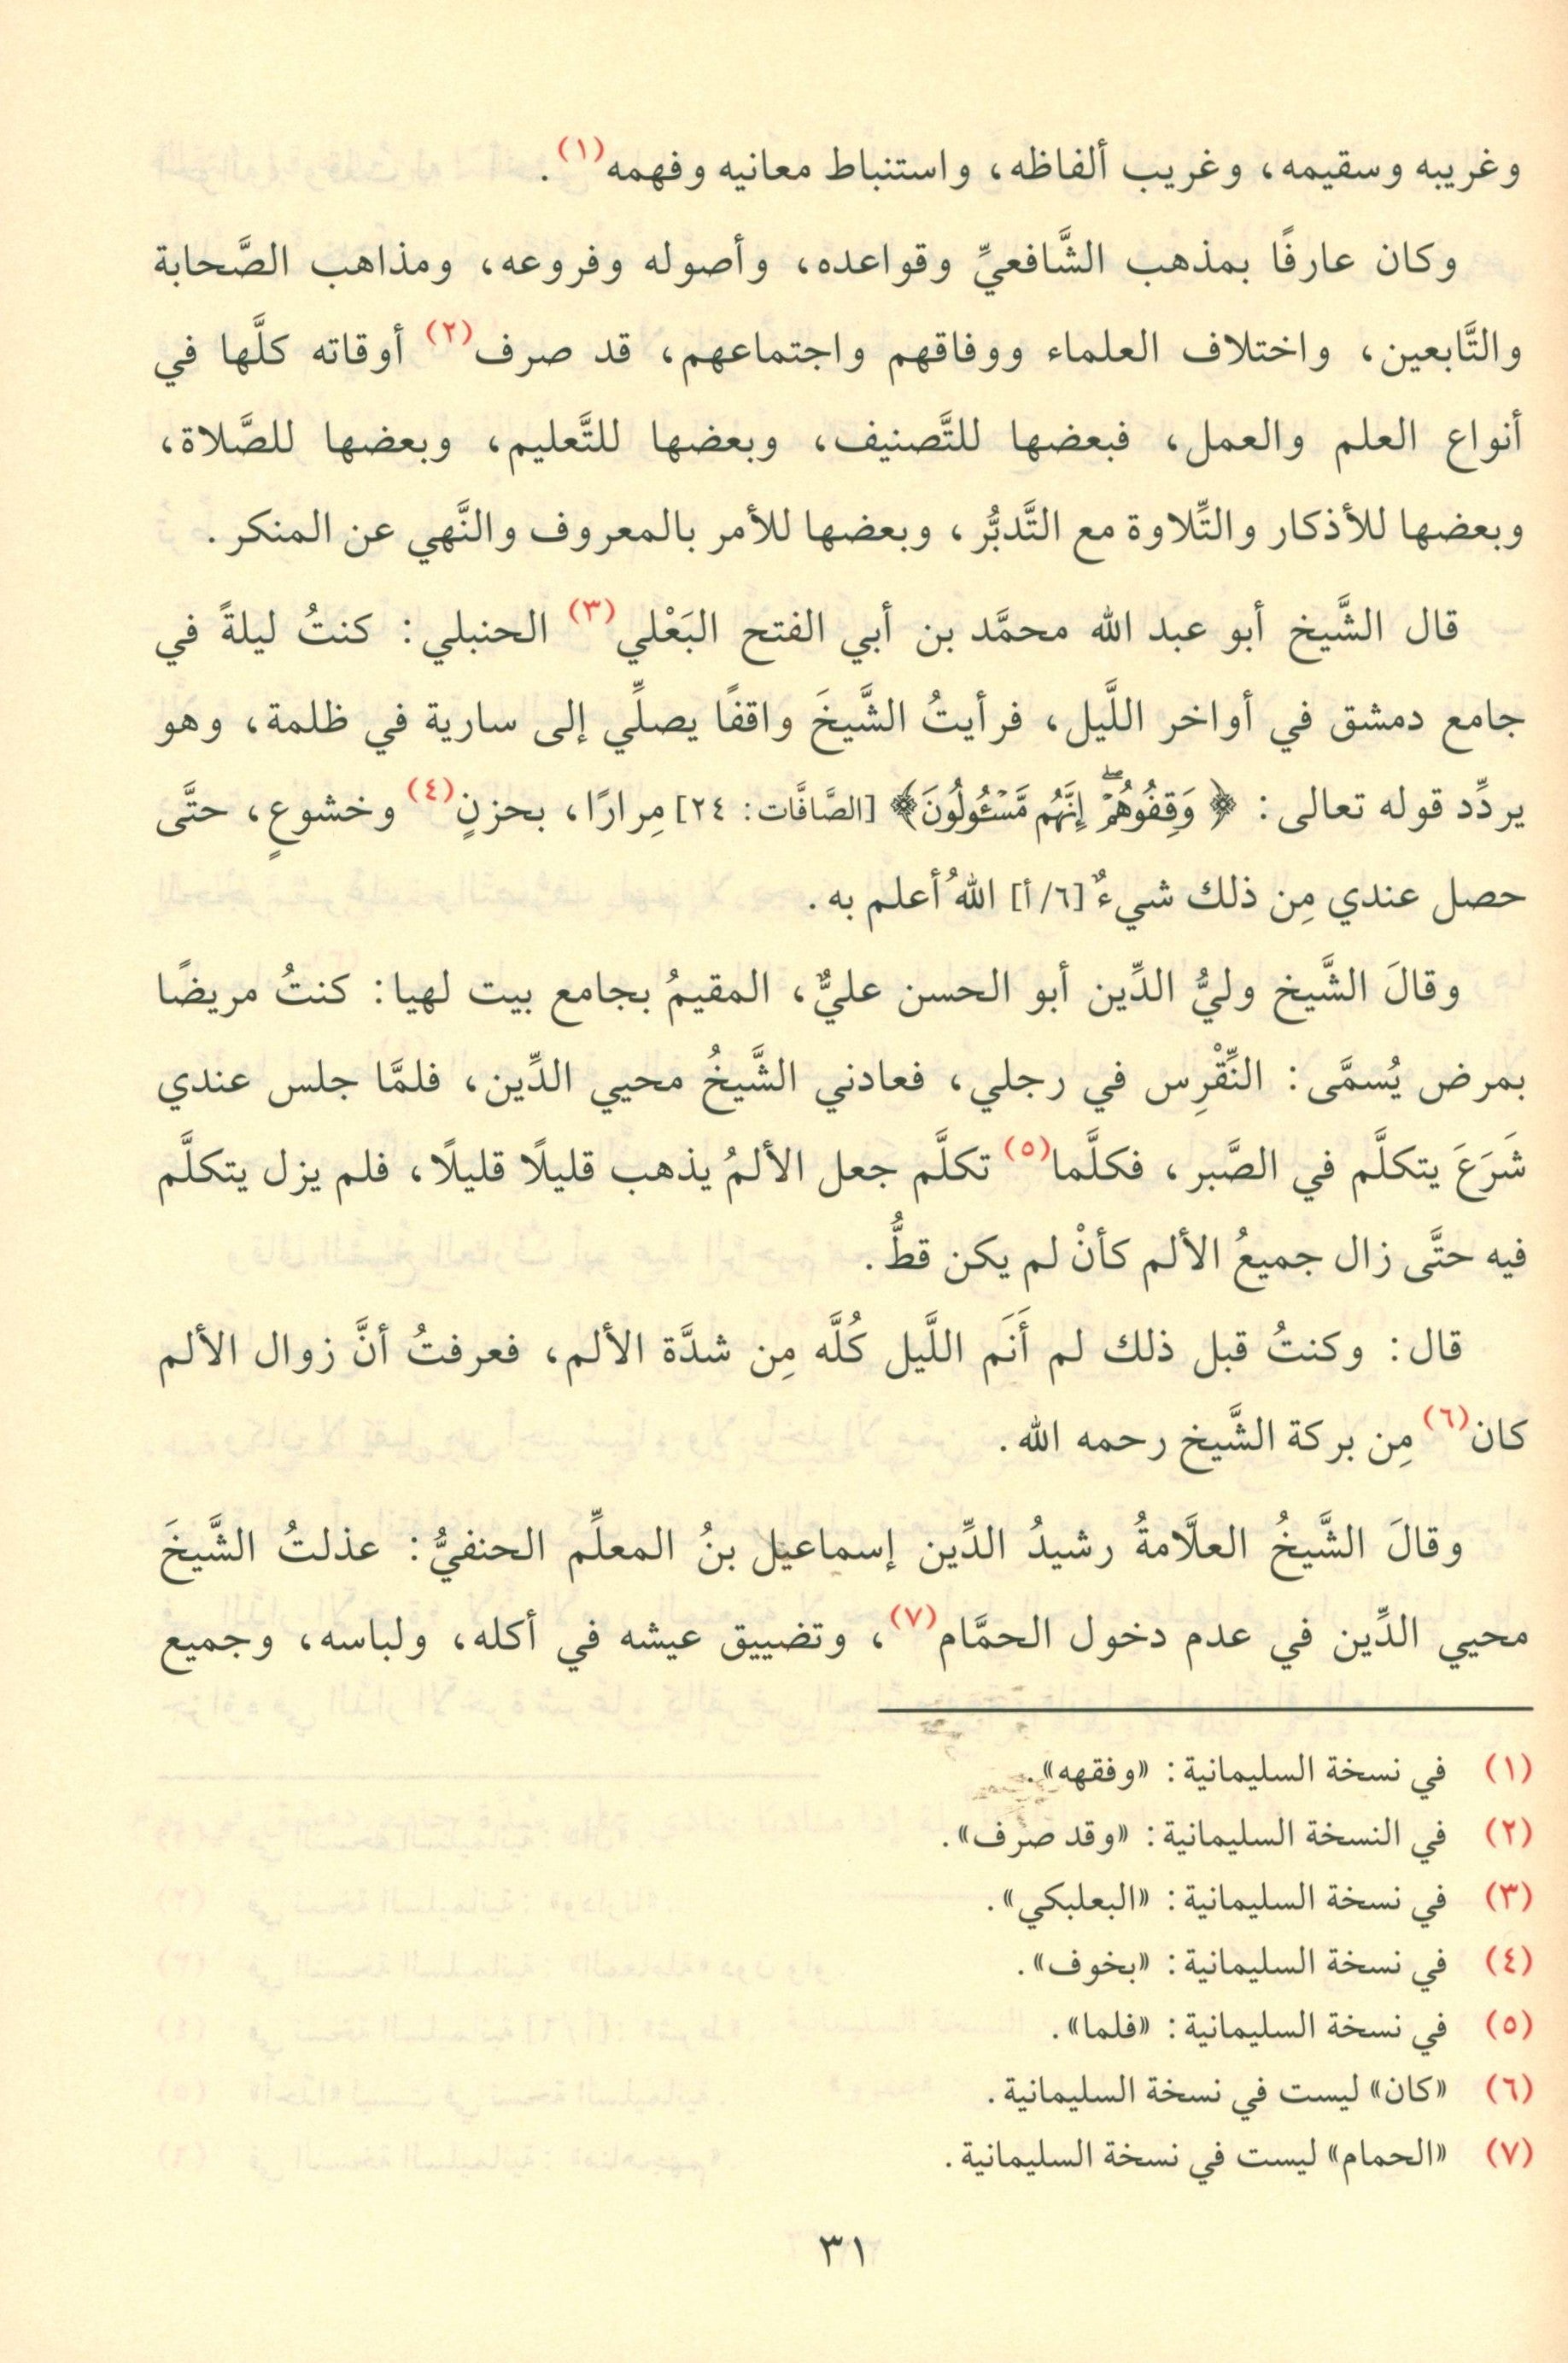 وغريبه وسقيمه، وغريب ألفاظه، واستنباط معانيه وفهمه(١).
وكان عارفًا بمذهب الشَّافعيِّ وقواعده، وأصوله وفروعه، ومذاهب الصَّحابة
والتَّابعين، واختلاف العلماء ووفاقهم واجتماعهم، قد صرف(٢) أوقاته كلَّها في
أنواع العلم والعمل، فبعضها للتَّصنيف، وبعضها للتَّعليم، وبعضها للصَّلاة،
وبعضها للأذكار والتِّلاوة مع التَّدبُّر، وبعضها للأمر بالمعروف والنَّهي عن المنكر.
قال الشَّيخ أبو عبد الله محمَّد بن أبي الفتح البَعْلي(٣) الحنبلي: كنتُ ليلةً في
جامع دمشق في أواخر اللَّيل، فرأيتُ الشَّيخَ واقفًا يصلِّي إلى سارية في ظلمة، وهو
يردِّد قوله تعالى: ﴿وَقِفُوهُمْۖ إِنَّهُم مَّسْـُٔولُونَ﴾ [الصَّافَّات: ٢٤] مِرارًا، بحزنٍ(٤) وخشوعٍ، حتَّى
حصل عندي مِن ذلك شيءٌ [٦/ أ] اللهُ أعلم به.
وقالَ الشَّيخ وليُّ الدِّين أبو الحسن عليٌّ، المقيمُ بجامع بيت لهيا: كنتُ مريضًا
بمرض يُسمَّى: النِّقْرِس في رجلي، فعادني الشَّيخُ محيي الدِّين، فلمَّا جلس عندي
شَرَعَ يتكلَّم في الصَّبر، فكلَّما(٥) تكلَّم جعل الألمُ يذهب قليلًا قليلًا، فلم يزل يتكلَّم
فيه حتَّى زال جميعُ الألم كأنْ لم يكن قطُّ.
قال: وكنتُ قبل ذلك لم أَنَم اللَّيل كُلَّه مِن شدَّة الألم، فعرفتُ أنَّ زوال الألم
كان(٦) مِن بركة الشَّيخ رحمه الله.
وقالَ الشَّيخُ العلَّامةُ رشيدُ الدِّين إسماعيل بنُ المعلِّم الحنفيُّ: عذلتُ الشَّيخَ
محيي الدِّين في عدم دخول الحمَّام(٧)، وتضييق عيشه في أكله، ولباسه، وجميع
(١) في نسخة السليمانية: «وفقهه».
(٢) في النسخة السليمانية: «وقد صرف».
(٣) في نسخة السليمانية: «البعلبكي».
(٤) في نسخة السليمانية: «بخوف».
(٥) في نسخة السليمانية: «فلما».
(٦) «كان» ليست في نسخة السليمانية.
(٧) «الحمام» ليست في نسخة السليمانية.
٣١